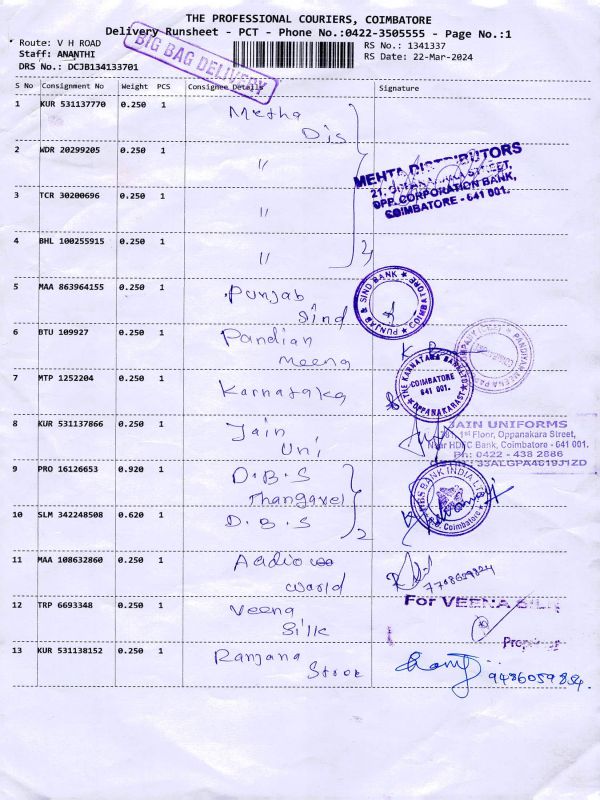 THE PROFESSIONAL COURIERS, COIMBATORE
Delivery Runsheet - PCT - Phone No.:0422-3505555 - Page No.:1
Route: V H ROAD
Staff: ANANTHI
DRS No.: DCJB134133701
BIG BAG DELIVERY
RS No.: 1341337
RS Date: 22-Mar-2024
S No Consignment No Weight PCS Consignee Details Signature
1 KUR 531137770 0.250 1 Metha
Dis
2 WDR 20299205 0.250 1 "
MEHTA DISTRIBUTORS
OPP. CORPORATION BANK,
COIMBATORE - 641 001.
3 TCR 30200696 0.250 1 "
4 BHL 100255915 0.250 1 "
5 MAA 863964155 0.250 1 Punjab
Sind
PUNJAB & SIND BANK ★ COIMBATORE ★
6 BTU 109927 0.250 1 Pandian
Meena
7 MTP 1252204 0.250 1 Karnataka
THE KARNATAKA BANK LTD
COIMBATORE
641 001.
8 KUR 531137866 0.250 1 Jain
Uni
JAIN UNIFORMS
1st Floor, Oppanakara Street,
Near HDFC Bank, Coimbatore - 641 001.
Ph: 0422 - 438 2686
9 PRO 16126653 0.920 1 D.B.S
Thangavel
DBS BANK INDIA LTD
Coimbatore
10 SLM 342248508 0.620 1 D.B.S
2
11 MAA 108632860 0.250 1 Aadio
world
12 TRP 6693348 0.250 1 Veena
Silk
For VEENA SILK
Proprietor
13 KUR 531138152 0.250 1 Ranjana
Stroe
9486059854